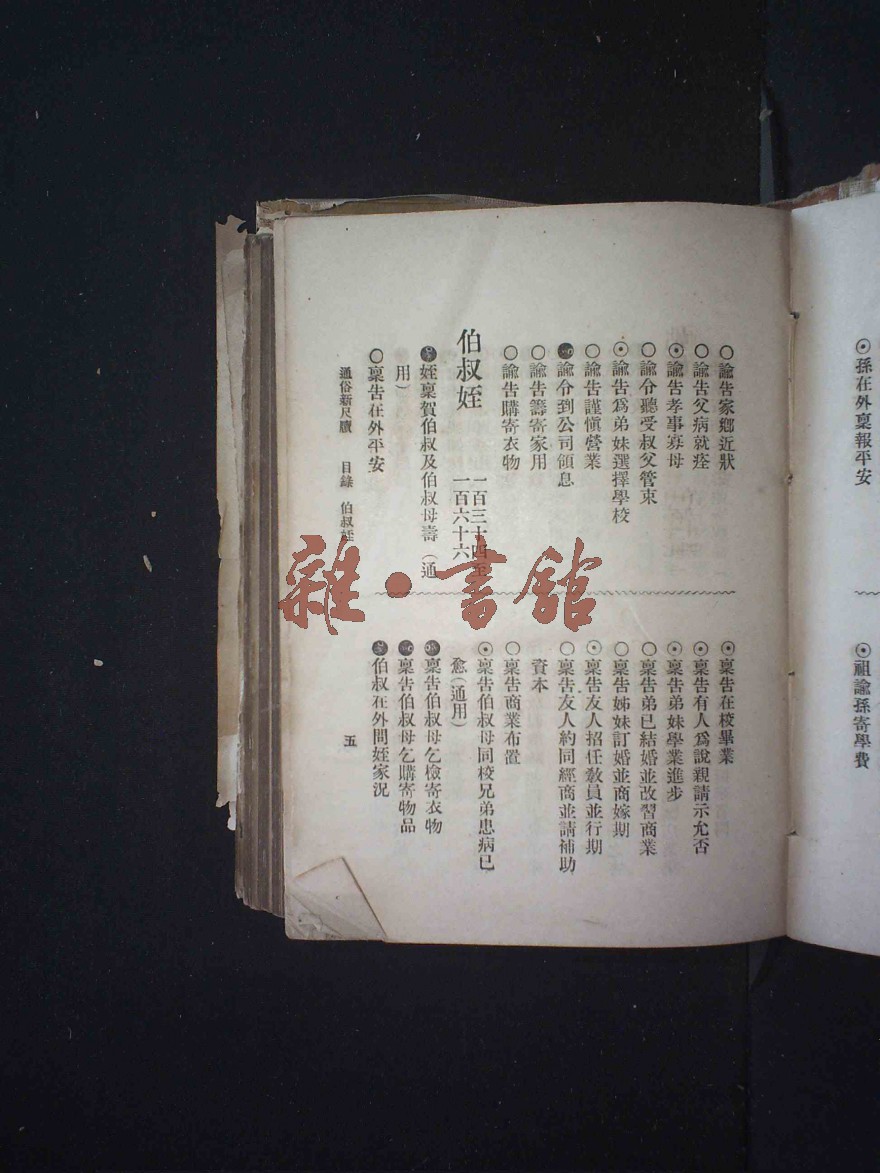 孫在外稟報平安
祖諭孫寄學費
○諭告家鄉近狀
○諭告父病就痊
⊙諭告孝事寡母
○諭令聽受叔父管束
⊙諭告爲弟妹選擇學校
○諭告謹愼營業
諭令到公司領息
○諭告籌寄家用
○諭告購寄衣物
伯叔姪
一百三十四至
一百六十六
姪稟賀伯叔及伯叔母壽(通
用)
○稟告在外平安
⊙稟告在校畢業
⊙稟告有人爲說親請示允否
⊙稟告弟妹學業進步
○稟告弟已結婚並改習商業
○稟告姊妹訂婚並商嫁期
⊙稟告友人招任敎員並行期
○稟告友人約同經商並請補助
資本
○稟告商業布置
⊙稟告伯叔母同校兄弟患病已
愈(通用)
稟告伯叔母乞檢寄衣物
稟告伯叔母乞購寄物品
伯叔在外問姪家況
通俗新尺牘 目錄 伯叔姪
五
雜·書館